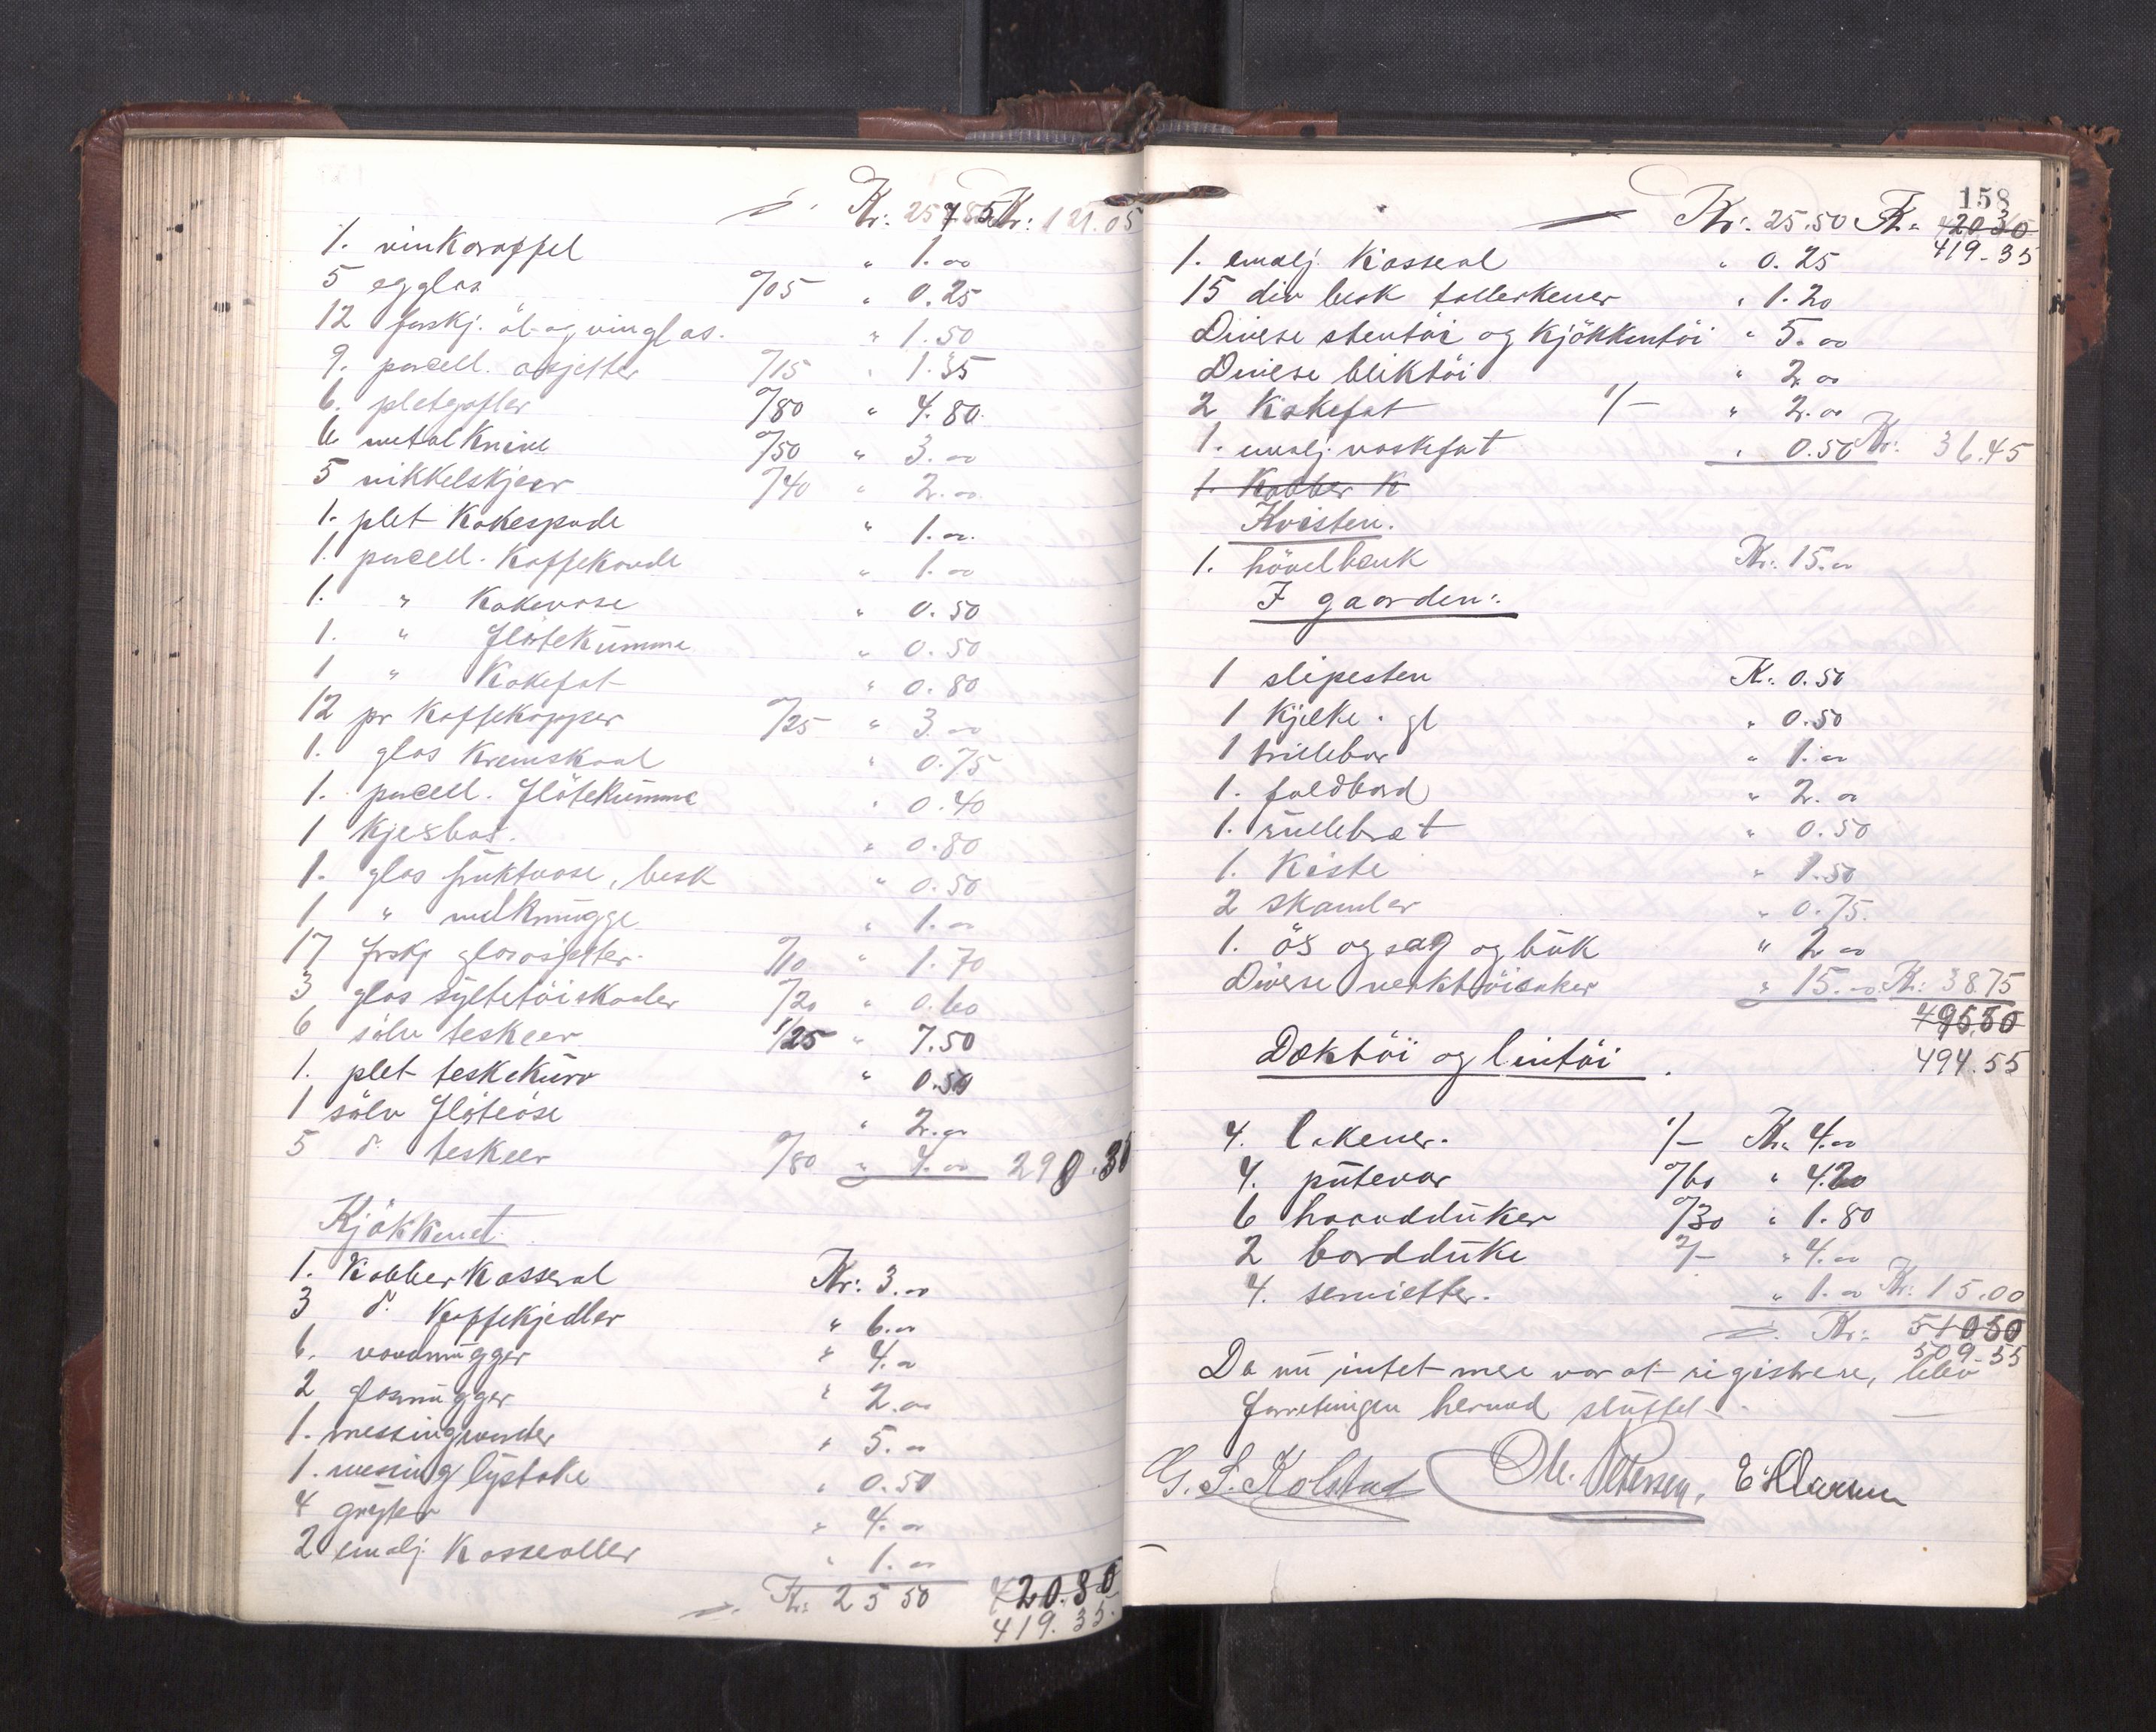 Kr: 257.85 Kr: 121.05
1. vinkaraffel " 1.00
5 egglas 0/05 " 0.25
12 forskj. öl- og vinglas. " 1.50
9. porcell. asjetter 0/15 " 1.35
6. pletgafler 0/80 " 4.80.
6 metalknive 0/50 " 3.00
5 nikkelskjeer 0/40 " 2.00
1. plet Kakespade " 1.00.
1. porcell. Kaffekande " 1.00
1. " Kakevase " 0.50
1. " flötekumme " 0.50
1 " Kakefat " 0.80
12 pr Kaffekopper 0/25 " 3.00
1. glas Kremskaal " 0.75
1. porcell. flötekumme " 0.40
1 Kjexbox. " 0.80
1. glas fruktvase, besk " 0.50
1 " melkmugge " 1.00
17 forskj glasasjetter. 0/10 " 1.70
3 glas syltetöiskaaler 0/20 " 0.60
6 sölv teskeer 1/25 " 7.50
1. plet teskekurv " 0.50
1 sölv flöteöse " 2.00
5 d. teskeer 0/80 " 4.00 298.30
Kjökkenet.
1. Kobber Kasserol Kr: 3.00
3 d. Kaffekjedler " 6.00
6. vandmugger " 4.00
2 glasmugger " 2.00
1. messing " 5.00
1. messing lystake " 0.50
4 gryter " 4.00
2 emalj. Kasseroller " 1.00
Kr: 25 50 420.80
419.35.
158
Kr: 25.50 Kr. 42030
1. emalj. Kasserol " 0.25 419-35
15 div besk tallerkener " 1.20
Diverse stentöi og Kjökkentöi " 5.00
Diverse bliktöi " 2.00
2 Kakefat 1/- " 2.00
1. emalj. vaskefat " 0.50 Kr: 36.45
1. Kobber K
Kvisten.
1. hövelbenk Kr: 15.00
I gaarden:
1 slipesten K: 0.50
1 Kjelke. gl " 0.50
1 trillebor " 1.00
1. foldbord " 2.00
1. rullebræt " 0.50
1. Kiste " 1.50
2 skamler " 0.75.
1. öx og sag og buk " 2.00
Diverse verktöisaker " 15.00 Kr: 38.75
495.50
Dæktöi og lintöi. 494.55
4. lakener. 1/- Kr. 4.00
4. putevar 0/60 " 4.20
6 haandduker 0/30 " 1.80
2 bordduke 2/- " 4.00
4. servietter. " 1.00 Kr: 15.00
Kr: 51050
509.55
Da nu intet mere var at registrere, blev
forretningen hermed sluttet.
G. S. Kolstad Ole. Petersen. E. Hlarsen